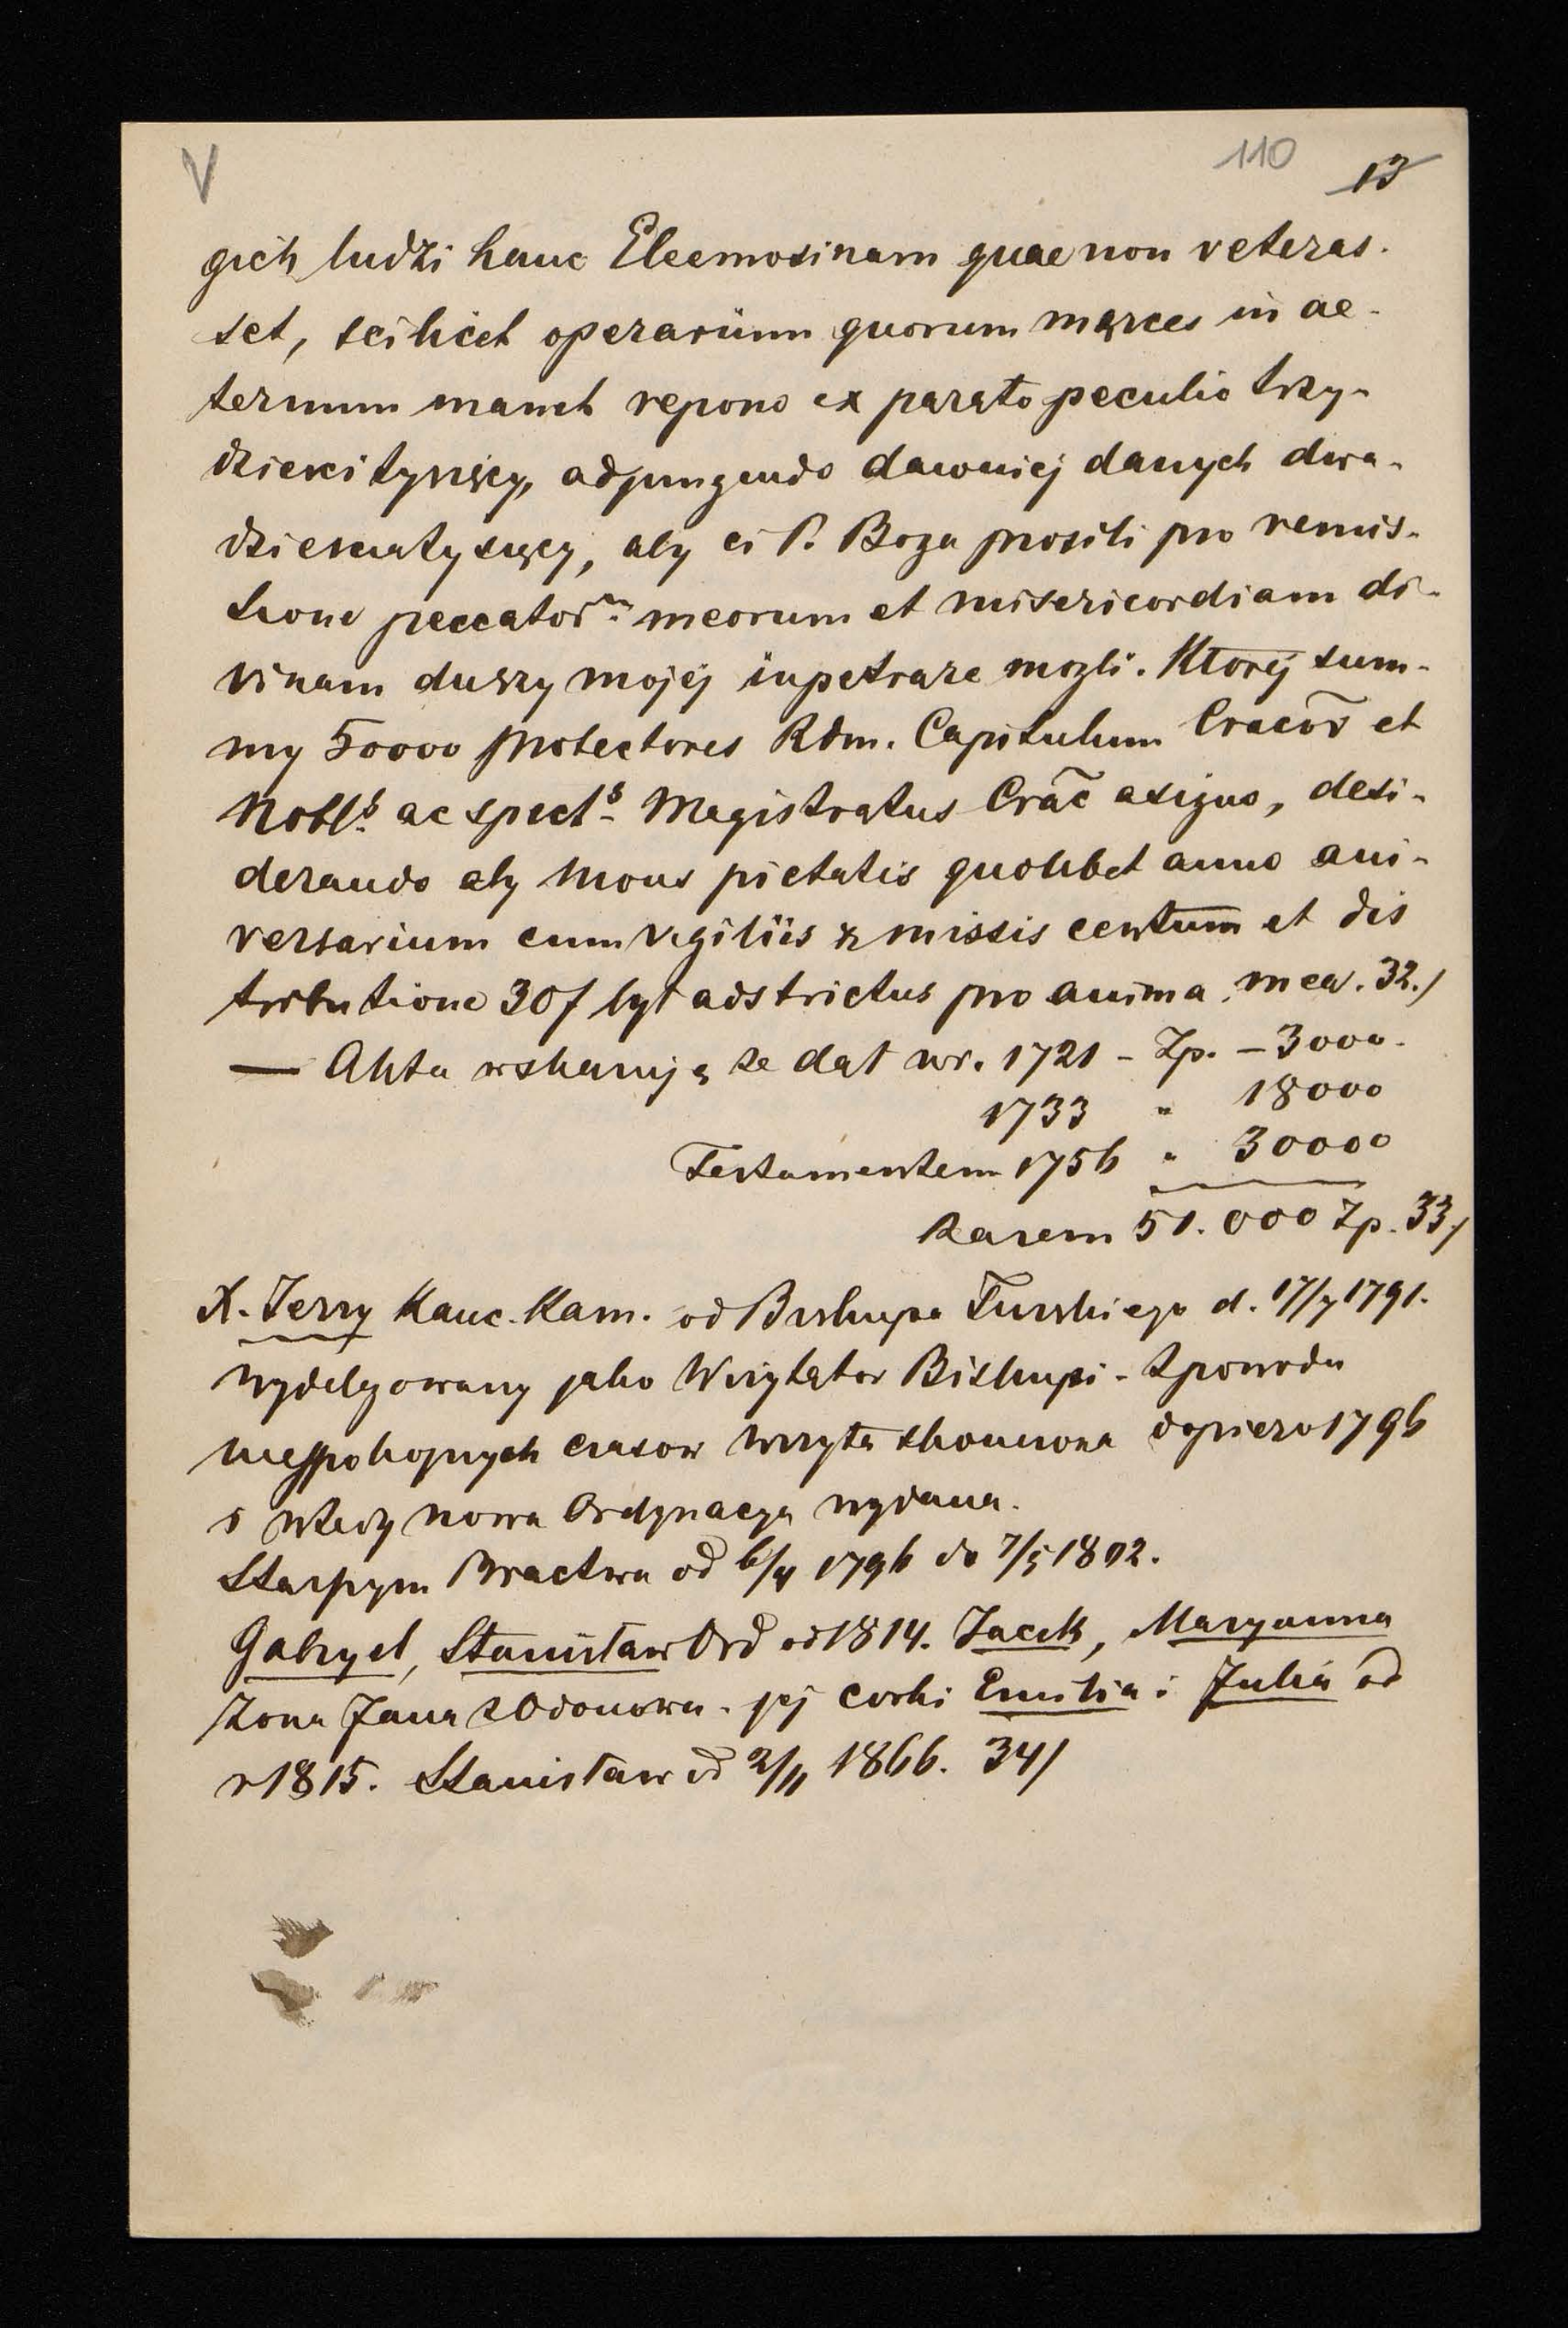 V 110 13
gich ludzi hanc Eleemosinam quae non veteras-
set, scilicet operarium quorum merces in ae-
ternum manet repono ex parato peculio trzy-
dzieści tysięcy, adjungendo dawniej danych dwa-
dzieścia tysięcy, aby ci P. Boga prosili pro remis-
sione peccator~ meorum et misericordiam di-
vinam duszy mojej inpetrare mogli. Której sum-
my 50000 protectores Rdm. Capitulum Cracov et
Nobls ac spects Magistratus Crac asigno, desi-
derando aby Mons pietatis quolibet anno ani-
versarium cum vigiliis z missis centum et dis
tributione 30f był adstrictus pro anima mea. 32./
— Akta wskazują że dał w r. 1721 - Zp. - 3000.
1733 " 18000
Testamentem 1756 " 30000
Razem 51.000 Zp. 33/
X. Jerzy Kanc. Kam. od Biskupa Turskiego d. 17/7 1791.
wydelgowany jako Wizytator Biskupi - Z powodu
niespokojnych czasow wizyta skonczona dopiero 1796
i wtedy nowa Ordynacya wydana.
Starszym Bractwa od 6/4 1796 do 7/5 1802.
Gabryel, Stanisław Ord od 1814. Jacek, Maryanna
żona Jana z Odonowa - jej corki Emilia i Julia od
r 1815. Stanisław od 2/11 1866. 34/